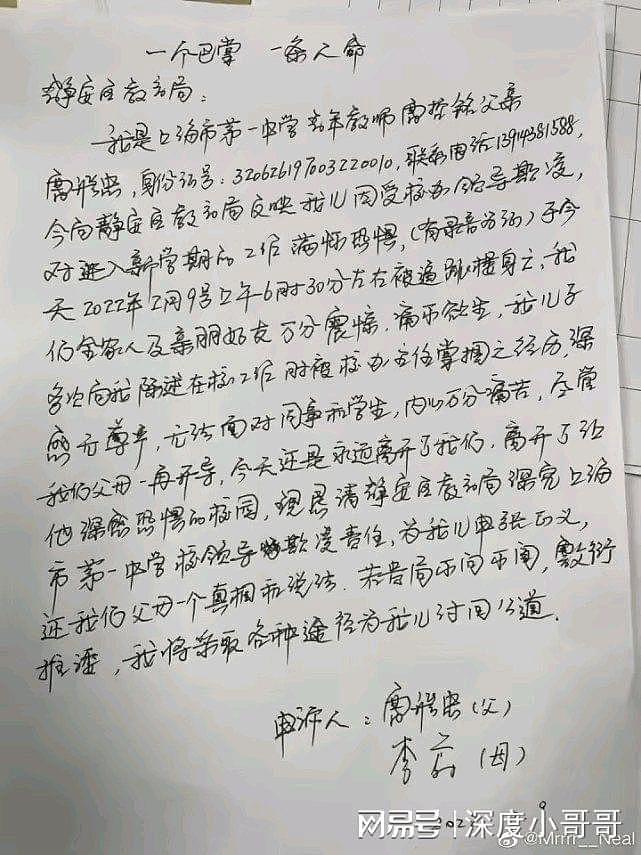 一个巴掌 一条人命
静安区教育局：
我是上海市第一中学青年教师唐哲铭父亲
唐 ，身份证号：320626197003220010，联系电话13914381588，
今向静安区教育局反映我儿因受校办领导欺凌，
对进入新学期的工作满怀恐惧，(有录音为证)于今
天2022年2月9号上午6时30分左右被逼跳楼身亡，我
们全家人及亲朋好友万分震惊，痛不欲生，我儿子
多次向我陈述在校工作时被校办主任掌掴之经历，深
感无尊严，无法面对同事和学生，内心万分痛苦，尽管
我们父母一再开导，今天还是永远离开了我们，离开了让
他深感恐惧的校园，现恳请静安区教育局深究上海
市第一中学校领导欺凌责任，为我儿申张正义，
还我们父母一个真相和说法。若贵局不问不闻，敷衍
推诿，我将采取各种途径为我儿讨回公道。
申诉人：唐 (父)
李 (母)
2022 9
网易号 | 深度小哥哥
@Mrrrr__Neal